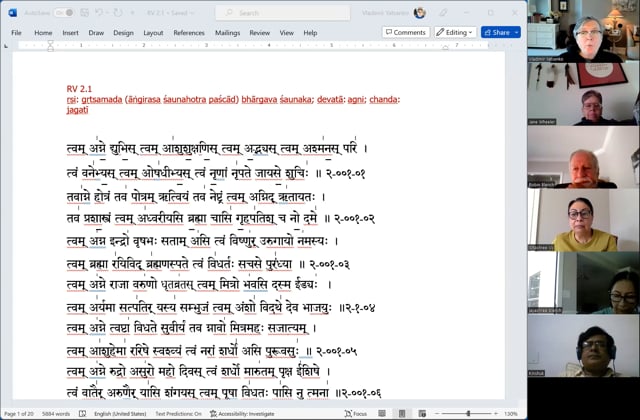 AutoSave Off RV 2.1 • Saved Search Vladimir Yatsenko
File Home Insert Draw Design Layout References Mailings Review View Help Comments Editing Share
RV 2.1
ṛṣi: gṛtsamada (āṅgirasa śaunahotra paścād) bhārgava śaunaka; devatā: agni; chanda:
jagatī
त्वम् अ॑ग्ने॒ द्युभि॒स् त्वम् आ॑शुशु॒क्षणि॒स् त्वम् अ॒द्भ्यस् त्वम् अश्म॑न॒स् परि॑ ।
त्वं वने॑भ्य॒स् त्वम् ओष॑धीभ्य॒स् त्वं नृ॒णां नृ॑पते जायसे॒ शुचिः॑ ॥ २-००१-०१
तवा॑ग्ने हो॒त्रं तव॑ पो॒त्रम् ऋ॒त्वियं॒ तव॑ ने॒ष्ट्रं त्वम् अ॒ग्निद् ऋ॑ताय॒तः ।
तव॑ प्रशा॒स्त्रं त्वम् अ॑ध्वरीयसि ब्र॒ह्मा चासि॑ गृ॒हप॑तिश् च नो॒ दमे॑ ॥ २-००१-०२
त्वम् अ॑ग्न॒ इन्द्रो॑ वृष॒भः स॒ताम् अ॑सि॒ त्वं विष्णु॑र् उरुगा॒यो न॑म॒स्यः॑ ।
त्वम् ब्र॒ह्मा र॑यि॒विद् ब्र॑ह्मणस्पते॒ त्वं वि॑धर्तः सचसे॒ पुरं॑ध्या ॥ २-००१-०३
त्वम् अ॑ग्ने॒ राजा॒ वरु॑णो धृ॒तव्र॑त॒स् त्वम् मि॒त्रो भ॑वसि द॒स्म ईड्यः॑ ।
त्वम् अ॑र्य॒मा सत्प॑ति॒र् यस्य॑ स॒म्भुजं॒ त्वम् अंशो॑ वि॒दथे॑ देव भाज॒युः ॥२-१-०४
त्वम् अ॑ग्ने॒ त्वष्टा॑ विध॒ते सु॒वीर्यं॒ तव॒ ग्नावो॑ मित्रमहः सजा॒त्यम् ।
त्वम् आ॑शु॒हेमा॑ ररिषे॒ स्वश्व्यं॒ त्वं न॒रां शर्धो॑ असि पुरू॒वसुः॑ ॥ २-००१-०५
त्वम् अ॑ग्ने रु॒द्रो असु॑रो म॒हो दि॒वस् त्वं शर्धो॒ मारु॑तम् पृ॒क्ष ई॑शिषे ।
त्वं वातै॑र् अरु॒णैर् या॑सि शंग॒यस् त्वम् पू॒षा वि॑ध॒तः पा॑सि॒ नु त्मना॑ ॥२-००१-०६
Page 1 of 20 5884 words English (United States) Text Predictions: On Accessibility: Investigate Focus 130%
Vladimir Yatsenko
Jane Wheeler
Kinshuk